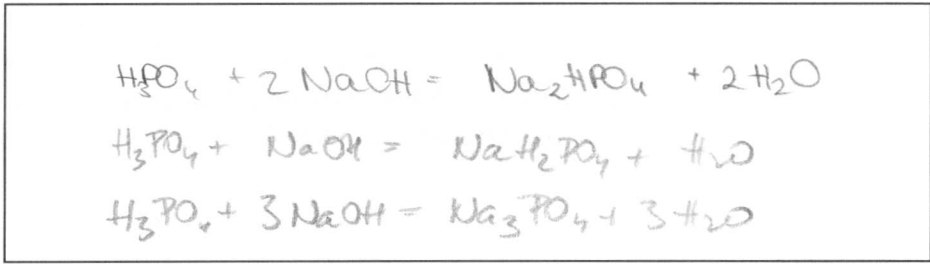 H₃PO₄ + 2 NaOH = Na₂HPO₄ + 2 H₂O
H₃PO₄ + NaOH = NaH₂PO₄ + H₂O
H₃PO₄ + 3 NaOH = Na₃PO₄ + 3 H₂O